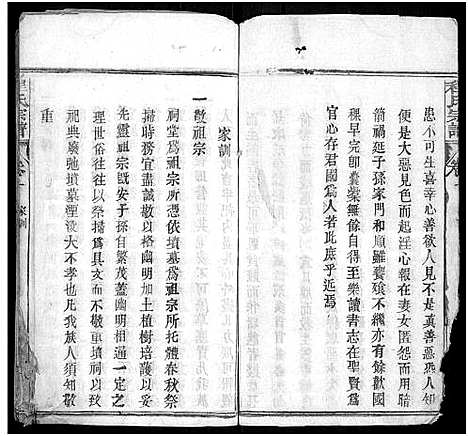 程氏宗譜
卷
患不可生喜幸心善欲人見不是真善惡恐人知
便是大惡見色而起淫心報在妻女匿怨而用暗
箭禍延子孫家門和順雖饔飧不繼亦有餘歡國
稞早完即囊橐無餘自得至樂讀書志在聖賢為
官心存君國為人若此庶乎近焉
家訓
一敬祖宗
祠堂為祖宗所憑依墳墓為祖宗所托體春秋祭
祀務宜盡誠敬以格幽明加土植樹培護以妥
先靈祖宗既安子孫自繁茂蓋幽明相通一定之
理世俗往往以祭掃為具文而不敬重墳祠以致
祀典廢弛墳墓湮没大不孝也凡我族人須知敬
重
程氏宗譜
卷
家訓